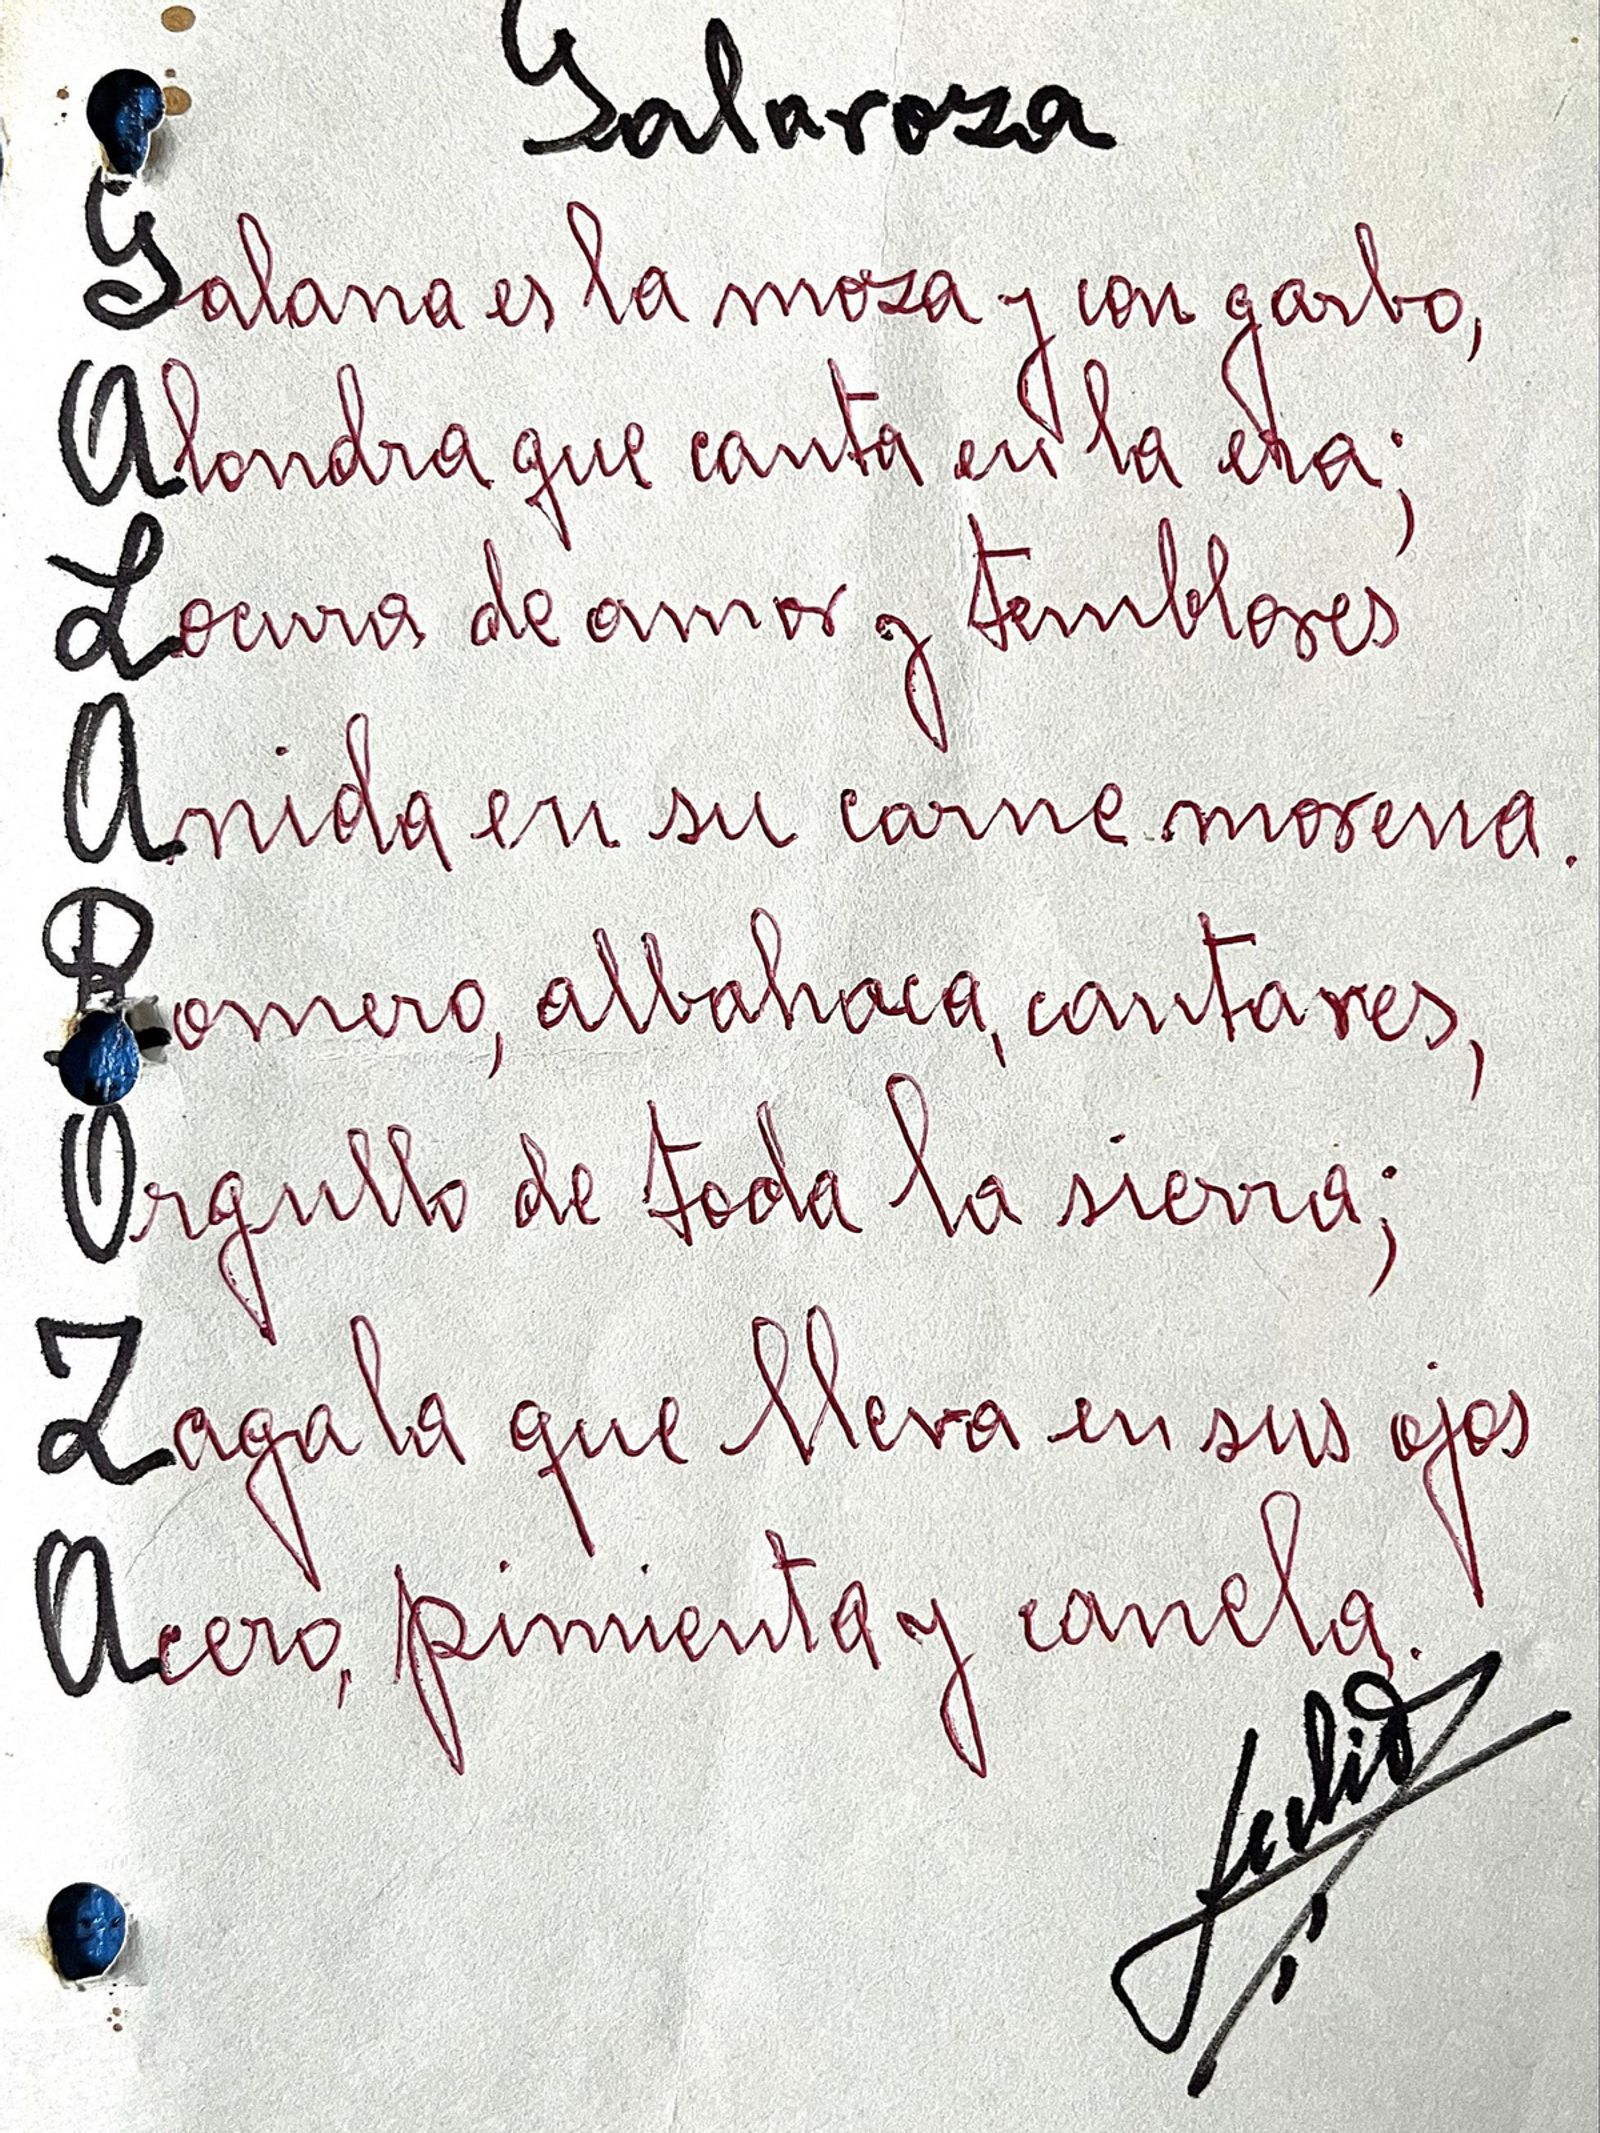 Galaroza
Galana es la moza y con garbo,
Alondra que canta en la era;
Locura de amor y temblores
Anida en su carne morena.
Romero, albahaca, cantares,
Orgullo de toda la sierra;
Zagala que lleva en sus ojos
Acero, pimienta y canela.
Julio